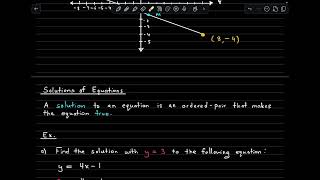 -8 -7 -6 -5 -4
(8,-4)
Solutions of Equations
A solution to an equation is an ordered-pair that makes
the equation true.
Ex.
a) Find the solution with y = 3 to the following equation:
y = 4x-1